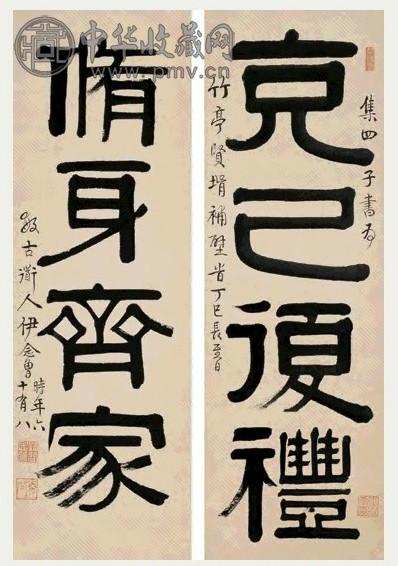 中华收藏网
www.pmv.cn
集四子書為
克己復禮
竹亭賢壻補壁旹丁巳長至日
脩身齊家
古衜人伊念曾時年六
十有八